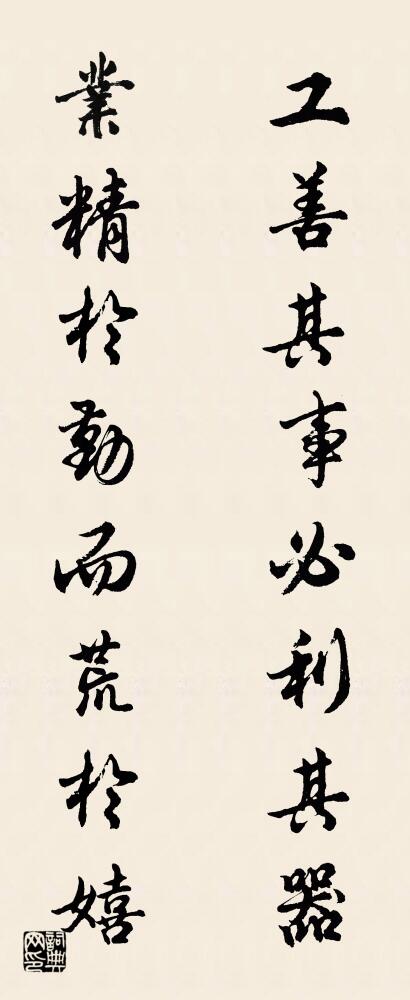 工善其事必利其器
業精於勤而荒於嬉
詞典網印